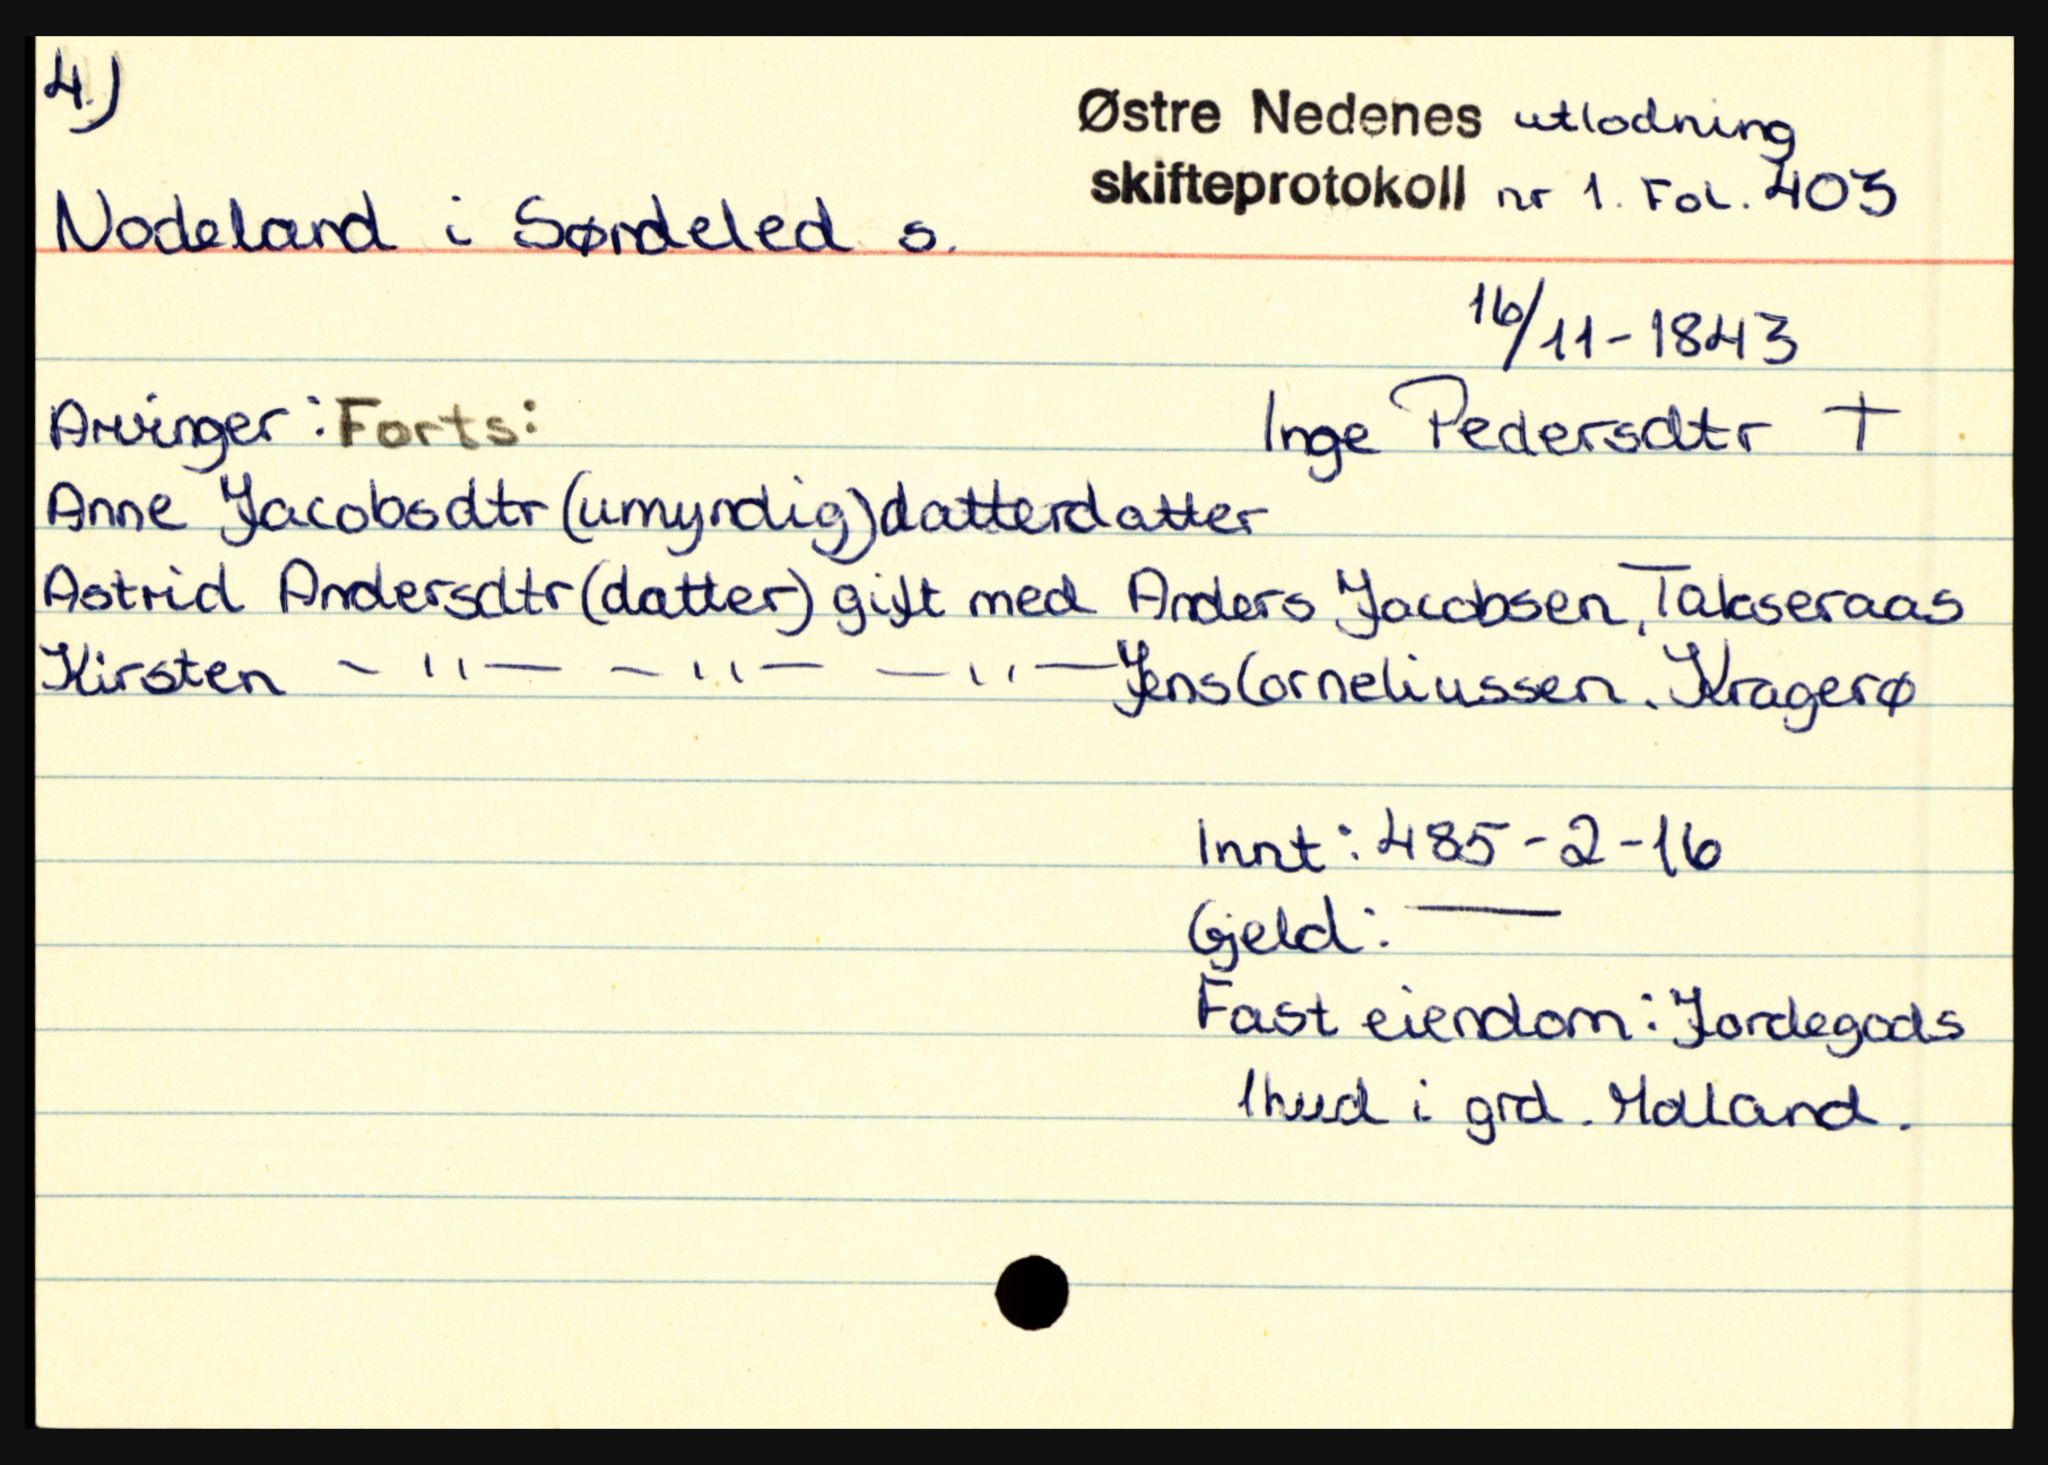 4.)
Østre Nedenes utlodning
skifteprotokoll nr 1. Fol. 403
Nodeland i Søndeled s.
16/11-1843
Arvinger: Forts:
Inge Pedersdtr †
Anne Jacobsdtr (umyndig) datterdatter
Astrid Andersdtr (datter) gift med Anders Jacobsen, Takseraas
Kirsten - " - - " - - " - Jens Corneliussen, Kragerø
Innt: 485-2-16
Gjeld: —
Fast eiendom: Jordegods
1 hud i grd.